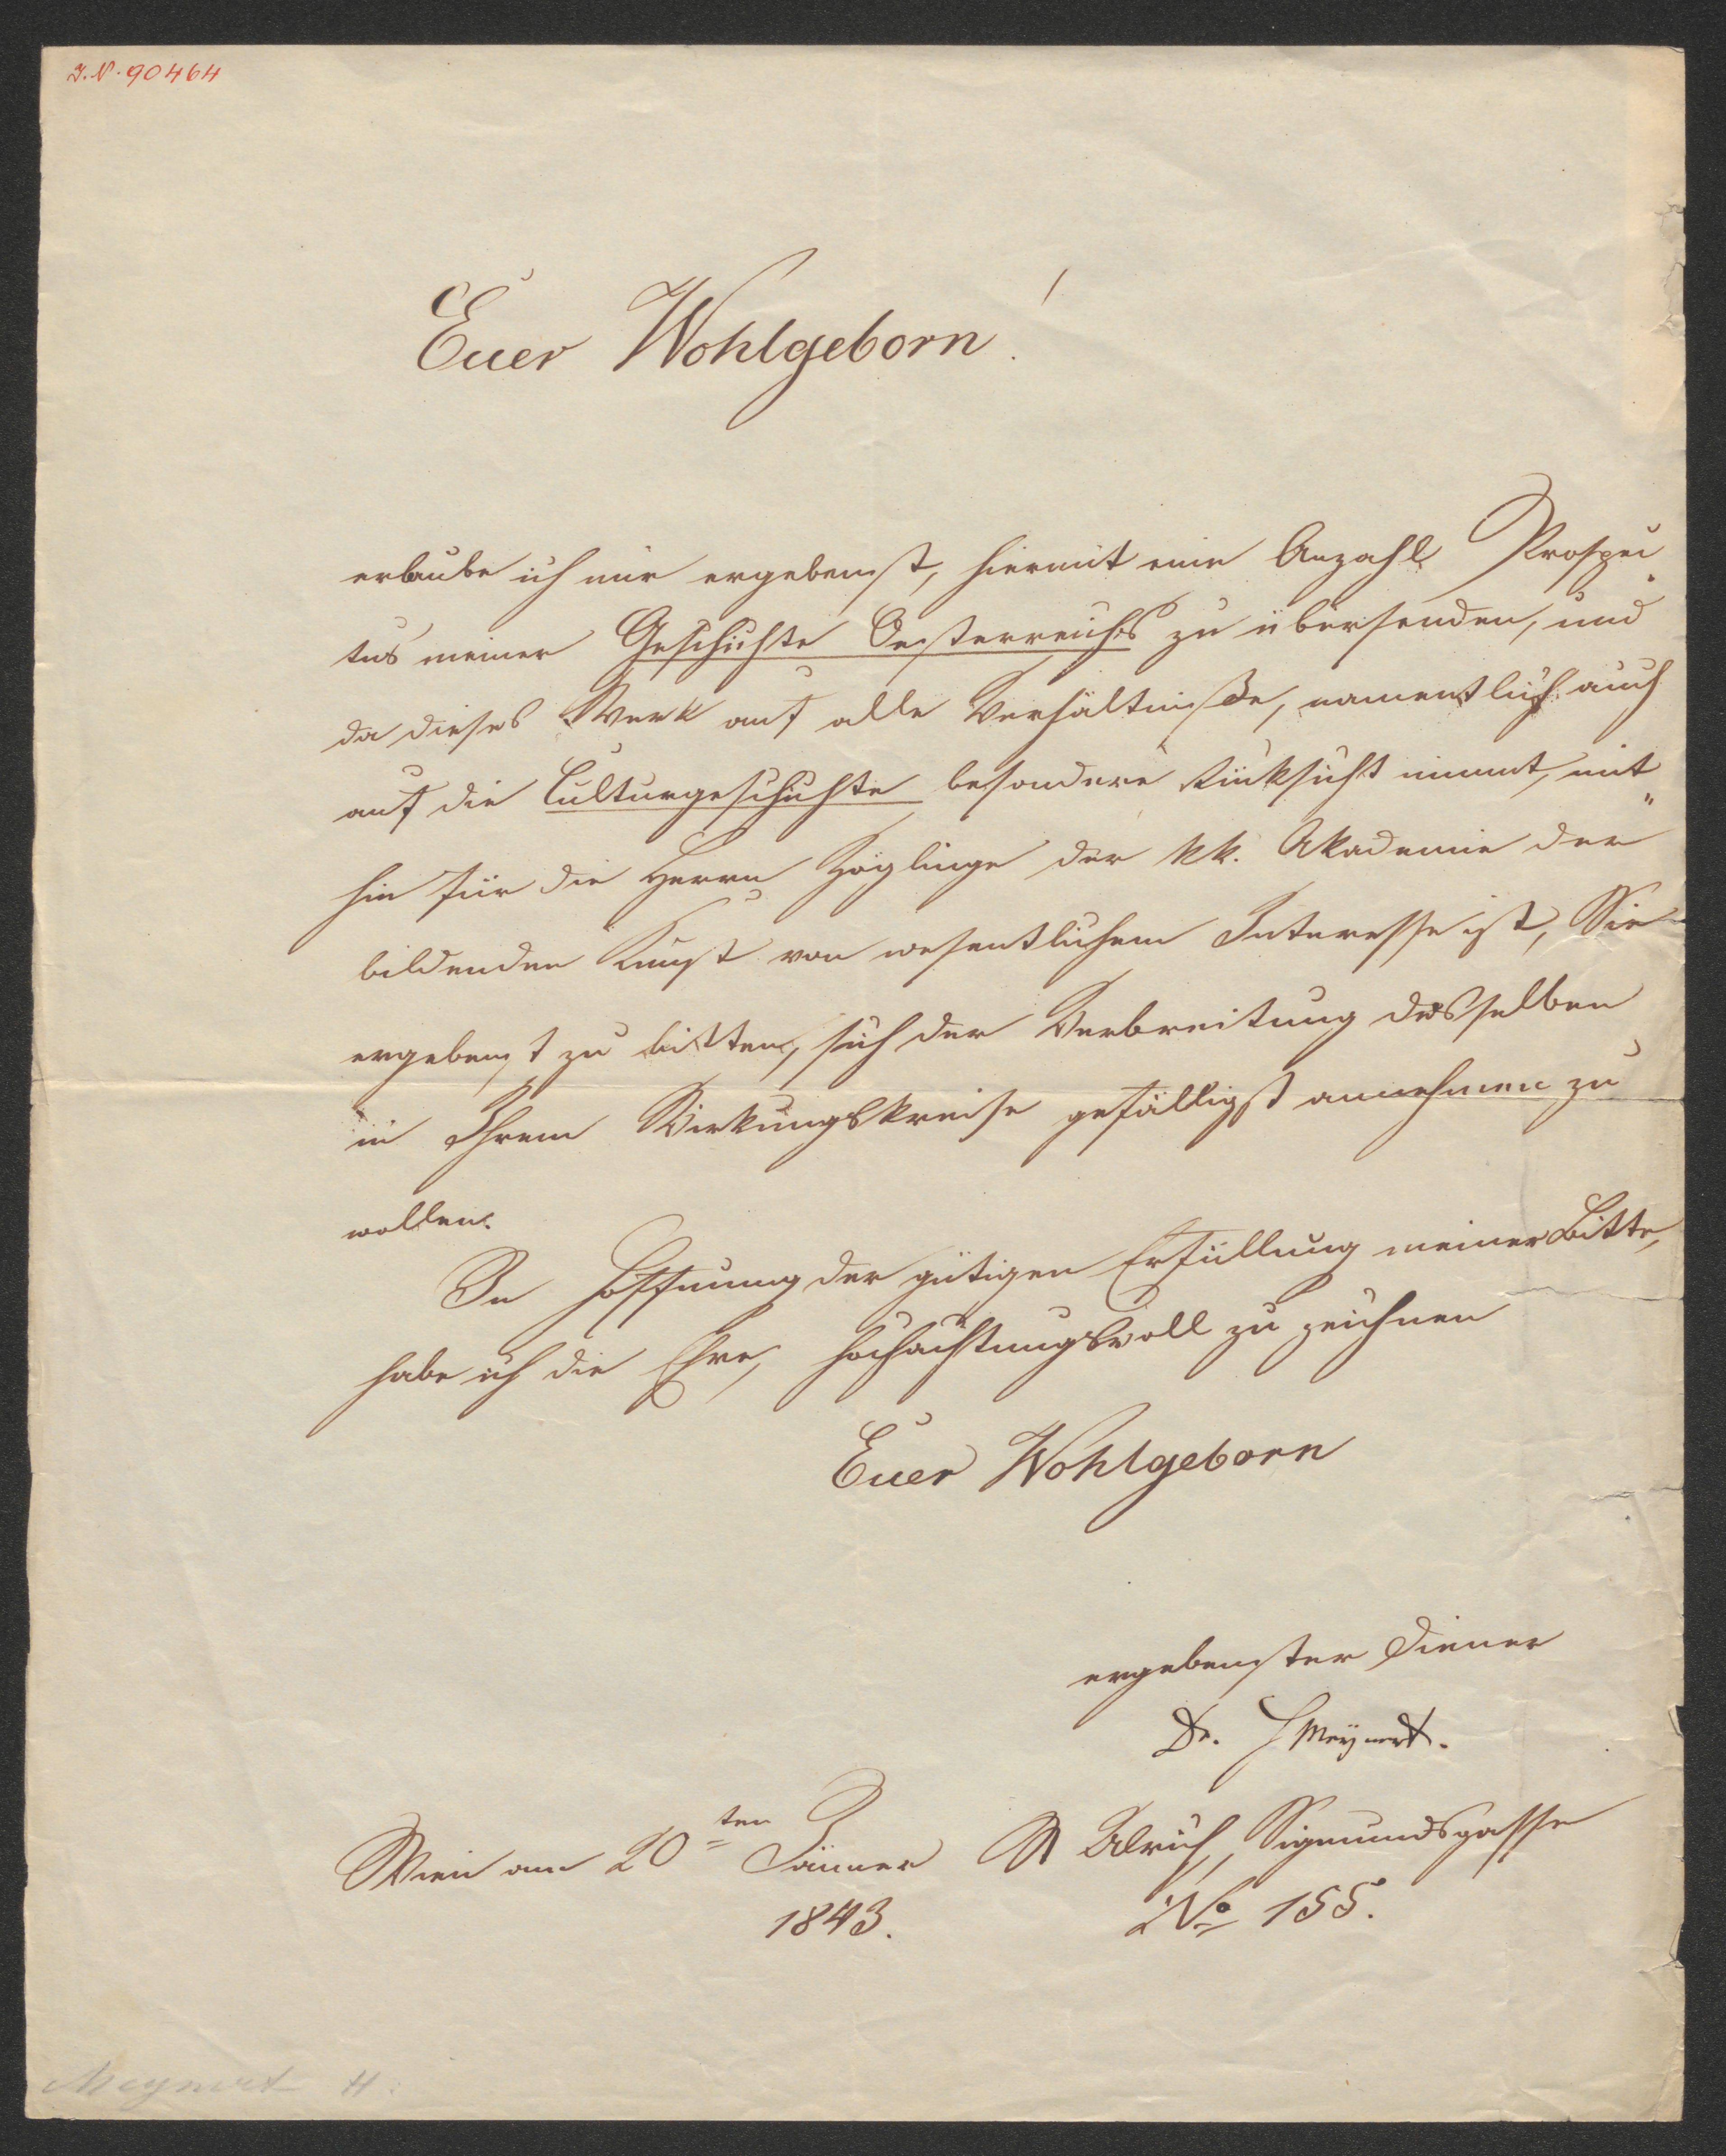 I. N. 90464
Euer Wohlgeborn!
erlaube ich mir ergebenst, hiermit eine Anzahl Prospec
tus meiner Geschichte Oesterreichs zu übersenden, und
da dieses Werk auf alle Verhältniße, namentlich auch
auf die Culturgeschichte besondere Rücksicht nimmt, mit„
hin für die Herrn Zöglinge der kk. Akademie der
bildenden Kunst von wesentlichem Interesse ist, Sie
ergebenst zu bitten, sich der Verbreitung desselben
in Ihrem Wirkungskreise gefälligst annehmen zu
wollen.
In Hoffnung der gütigen Erfüllung meiner Bitte,
habe ich die Ehre, hochachtungsvoll zu zeichnen
Euer Wohlgeborn
ergebenster Diener
Dr. H Meÿnert.
Wien am 20ten Jänner
1843.
St Ulrich, Sigmundsgasse
No 155.
Meynert H: